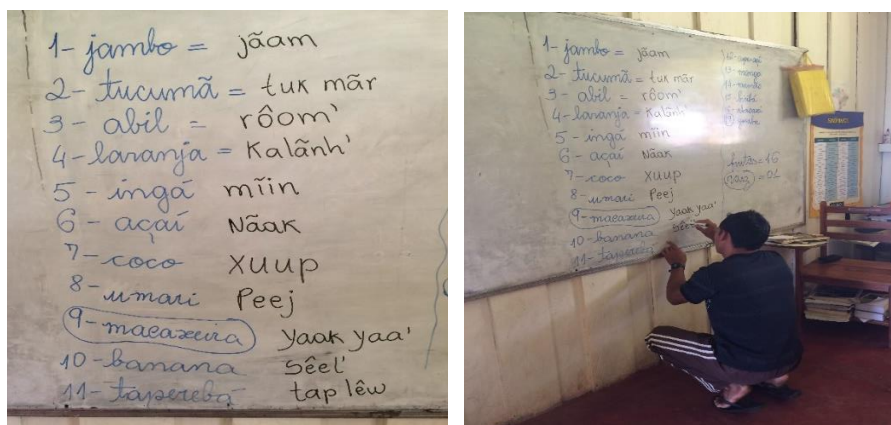 1- jambo = jãam
2- tucumã = tuk mãr
3- abil = rôom'
4- laranja = Kalãnh'
5- ingá mĩin
6- açaí Nãak
7- coco xuup
8- umari Peej
9- macaxeira yaak yaa'
10- banana sêel'
11- taperebá tap lêw
1- jambo = jãam
2- tucumã = tuk mãr
3- abil = rôom'
4- laranja = Kalãnh'
5- ingá mĩin
6- açaí Nãak
7- coco xuup
8- umari Peej
9- macaxeira yaak yaa'
10- banana sêel'
11- taperebá